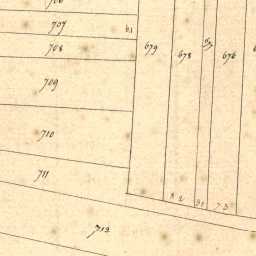 706
707
61
708
679
678
676
709
710
711
712